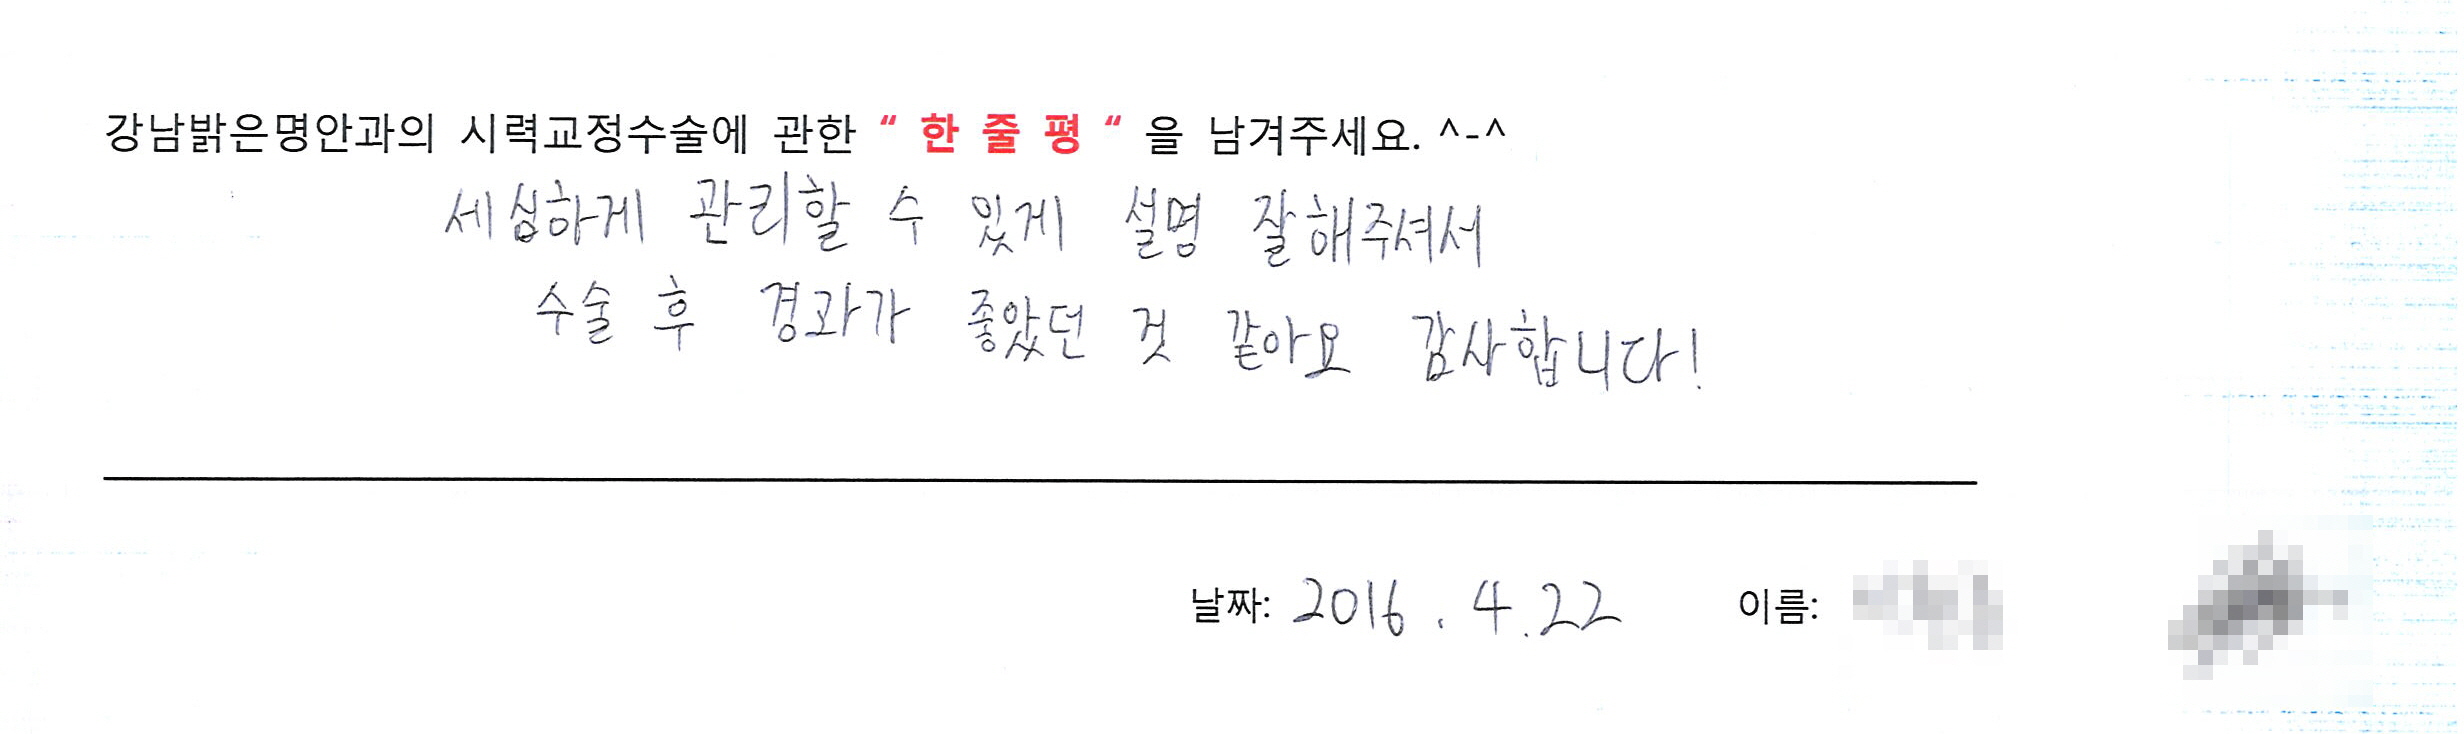 강남밝은명안과의 시력교정수술에 관한 “ 한 줄 평 “ 을 남겨주세요. ^-^
세심하게 관리할 수 있게 설명 잘해주셔서
수술 후 경과가 좋았던 것 같아요 감사합니다!
날짜: 2016. 4. 22 이름: